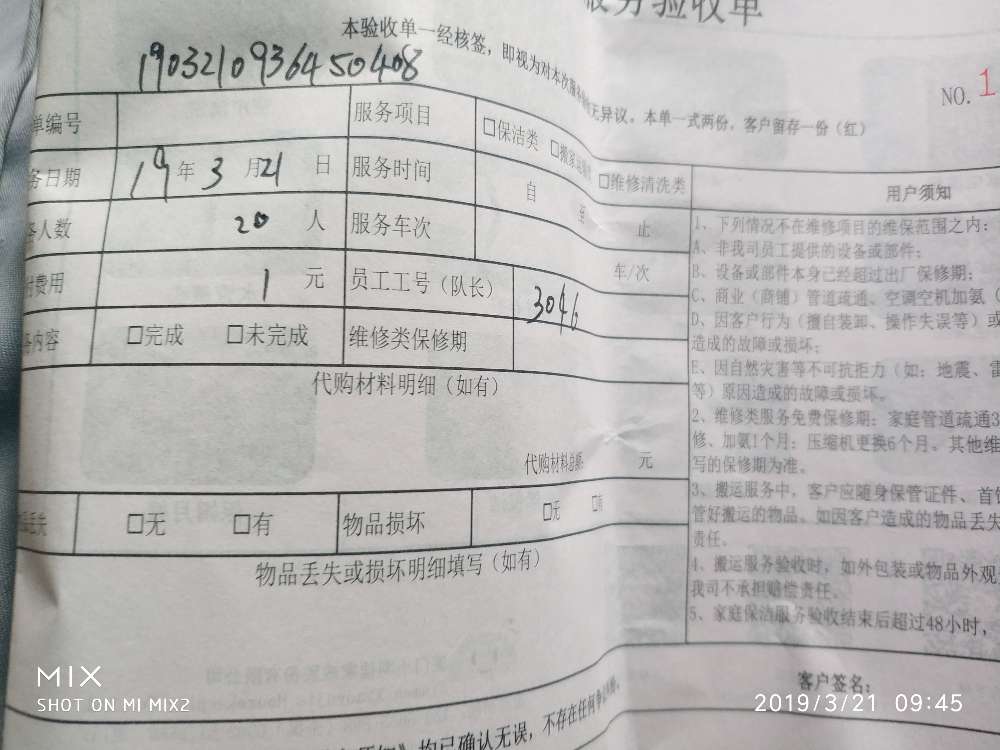 务验收单
本验收单一经核签，即视为对本次服务 无异议。本单一式两份，客户留存一份（红）
1903210936450408
NO. 1
单编号 服务项目 □保洁类 □搬家 □维修清洗类
务日期 19年3月21日 服务时间 自 至 止
务人数 20人 服务车次 车/次
付费用 1元 员工工号（队长） 3046
务内容 □完成 □未完成 维修类保修期
代购材料明细（如有）
代购材料总额： 元
丢失 □无 □有 物品损坏 □无 □有
物品丢失或损坏明细填写（如有）
用户须知
1、下列情况不在维修项目的维保范围之内：
A、非我司员工提供的设备或部件；
B、设备或部件本身已经超过出厂保修期；
C、商业（商铺）管道疏通、空调空机加氨（
D、因客户行为（擅自装卸、操作失误等）或
造成的故障或损坏；
E、因自然灾害等不可抗拒力（如：地震、雷
等）原因造成的故障或损坏。
2、维修类服务免费保修期：家庭管道疏通3
修、加氨1个月；压缩机更换6个月。其他维
写的保修期为准。
3、搬运服务中，客户应随身保管证件、首饰
管好搬运的物品。如因客户造成的物品丢失
责任。
4、搬运服务验收时，如外包装或物品外观
我司不承担赔偿责任。
5、家庭保洁服务验收结束后超过48小时，
客户签名：
均已确认无误，不存在任何争
MIX
SHOT ON MI MIX2
2019/3/21 09:45